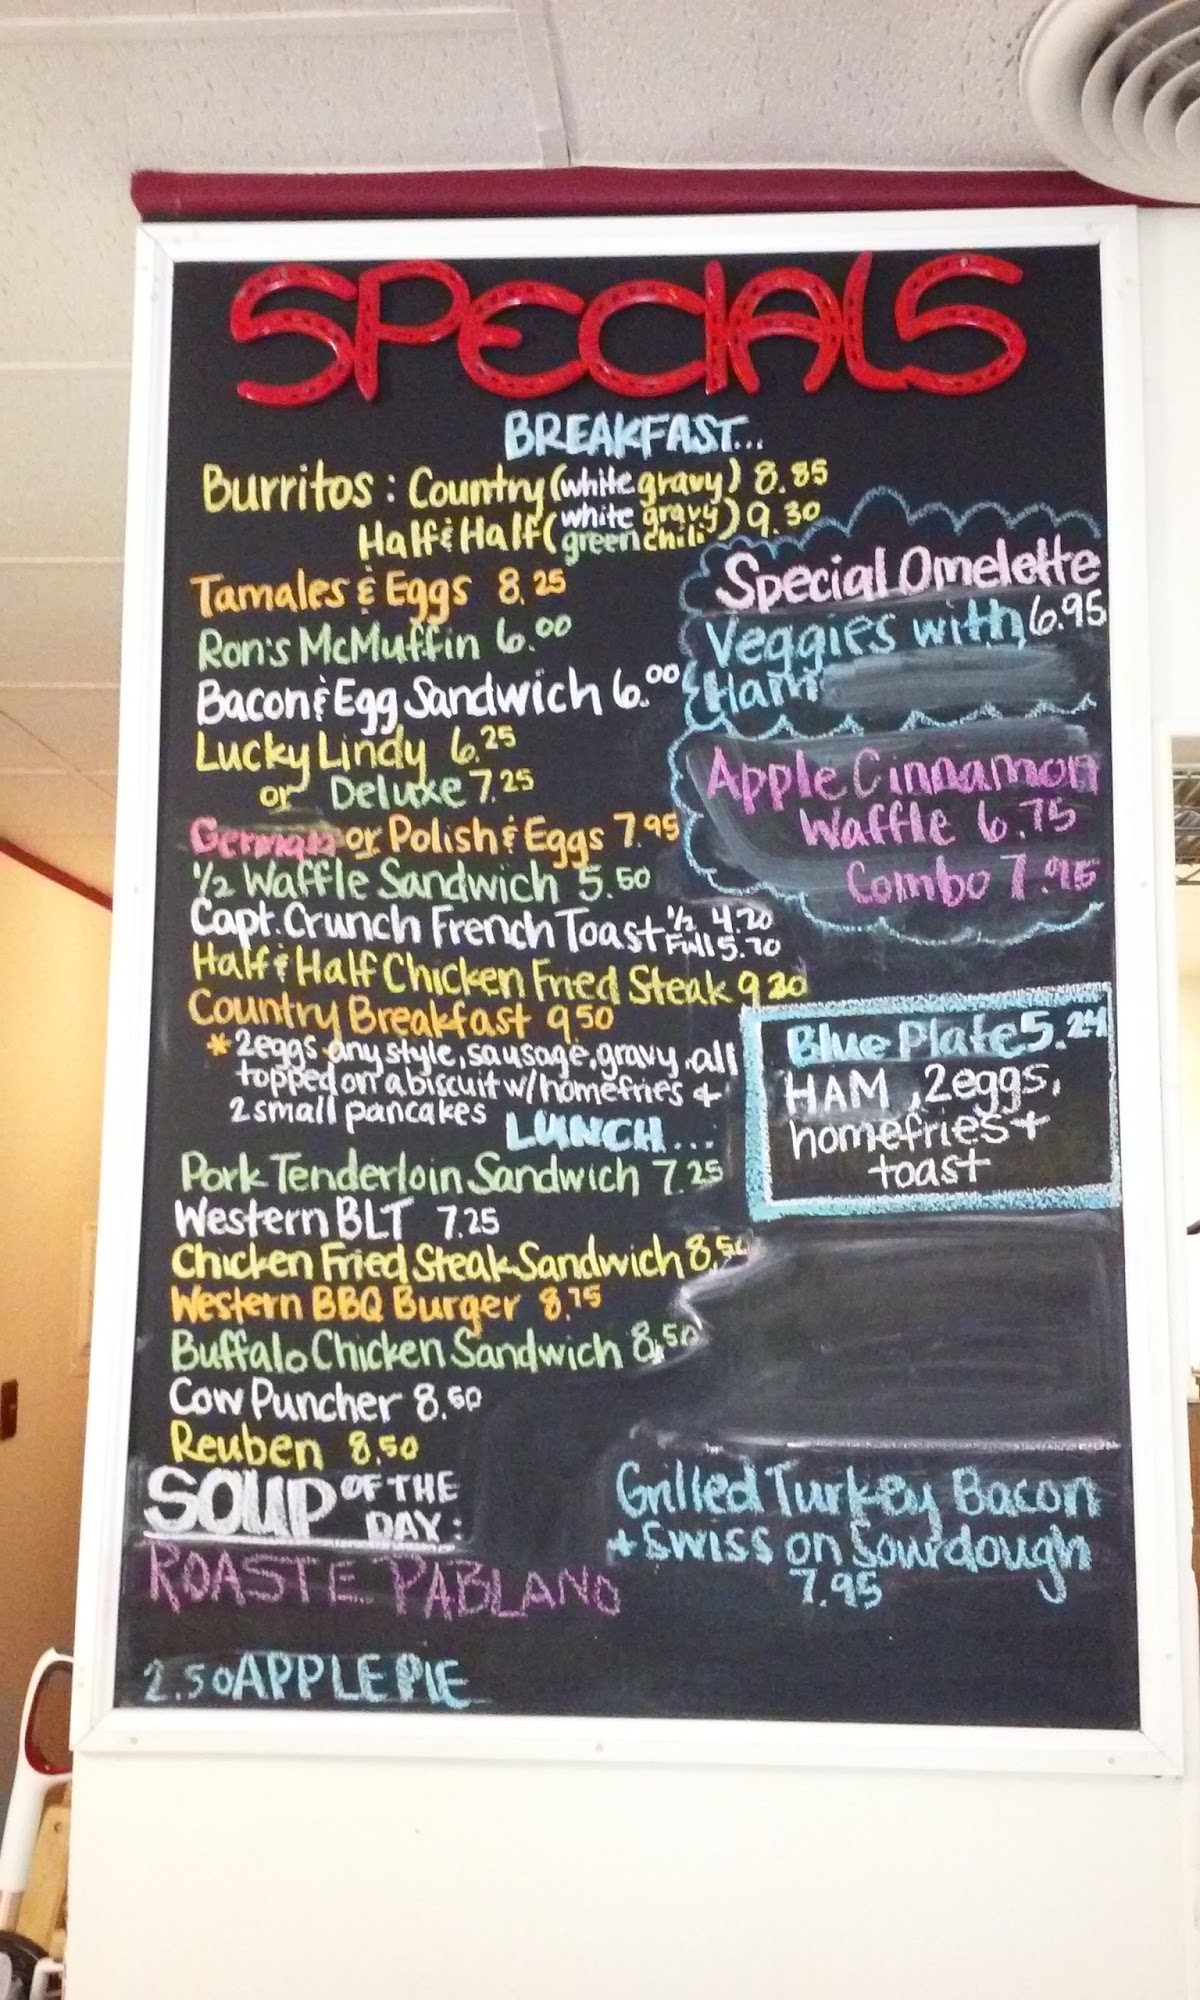 SPECIALS
BREAKFAST...
Burritos: Country (white gravy) 8.85
Half & Half (white gravy green chili) 9.30
Tamales & Eggs 8.25
Ron's McMuffin 6.00
Bacon & Egg Sandwich 6.00
Lucky Lindy 6.25
or Deluxe 7.25
German or Polish & Eggs 7.95
1/2 Waffle Sandwich 5.50
Capt. Crunch French Toast 1/2 4.20
Full 5.70
Half & Half Chicken Fried Steak 9.30
Country Breakfast 9.50
*2eggs any style, sausage, gravy, all
topped on a biscuit w/ homefries +
2 small pancakes
Special Omelette
Veggies with 6.95
Ham
Apple Cinnamon
Waffle 6.75
Combo 7.95
Blue Plate 5.24
HAM, 2eggs,
homefries +
toast
LUNCH...
Pork Tenderloin Sandwich 7.25
Western BLT 7.25
Chicken Fried Steak Sandwich 8.50
Western BBQ Burger 8.75
Buffalo Chicken Sandwich 8.50
Cow Puncher 8.50
Reuben 8.50
SOUP OF THE
DAY:
ROASTE PABLANO
Grilled Turkey Bacon
+ Swiss on Sourdough
7.95
2.50 APPLE PIE